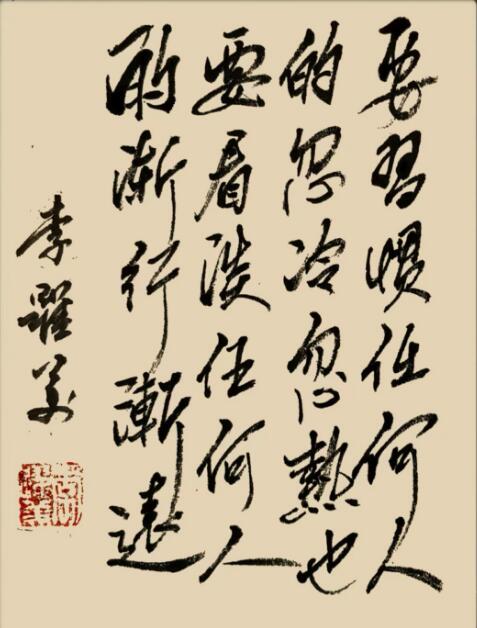 要習慣任何人
的忽冷忽熱也
要看淡任何人
的漸行漸遠
李躍華